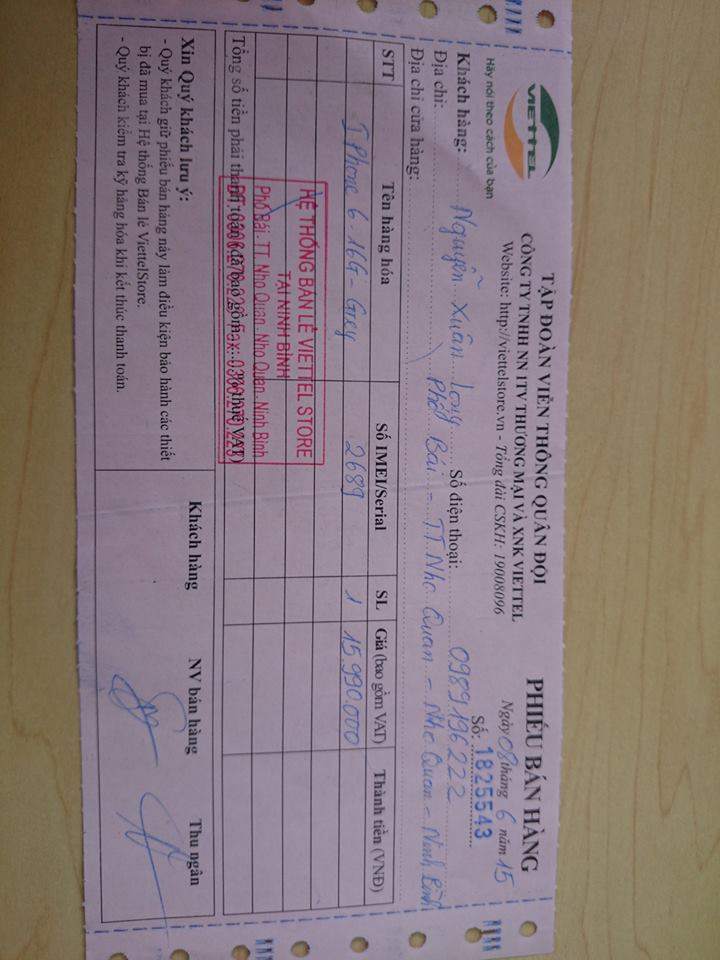 VIETTEL
Hãy nói theo cách của bạn
TẬP ĐOÀN VIỄN THÔNG QUÂN ĐỘI
CÔNG TY TNHH NN 1TV THƯƠNG MẠI VÀ XNK VIETTEL
Website: http://viettelstore.vn - Tổng đài CSKH: 19008096
PHIẾU BÁN HÀNG
Ngày 08 tháng 6 năm 15
Số: 1825543
Khách hàng: Nguyễn Xuân Long Số điện thoại: 0989196222
Địa chỉ: Phố Bái - TT. Nho Quan - Nho Quan - Ninh Bình
Địa chỉ cửa hàng:
STT Tên hàng hóa Số IMEI/Serial SL Giá (bao gồm VAT) Thành tiền (VNĐ)
I Phone 6 - 16G - Grey 2689 1 15.990.000
HỆ THỐNG BÁN LẺ VIETTEL STORE
TẠI NINH BÌNH
Phố Bái - TT. Nho Quan - Nho Quan - Ninh Bình
Tổng số tiền phải thanh toán (đã bao gồm thuế VAT)
Xin Quý khách lưu ý:
- Quý khách giữ phiếu bán hàng này làm điều kiện bảo hành các thiết
bị đã mua tại Hệ thống Bán lẻ ViettelStore.
- Quý khách kiểm tra kỹ hàng hóa khi kết thúc thanh toán.
Khách hàng NV bán hàng Thu ngân